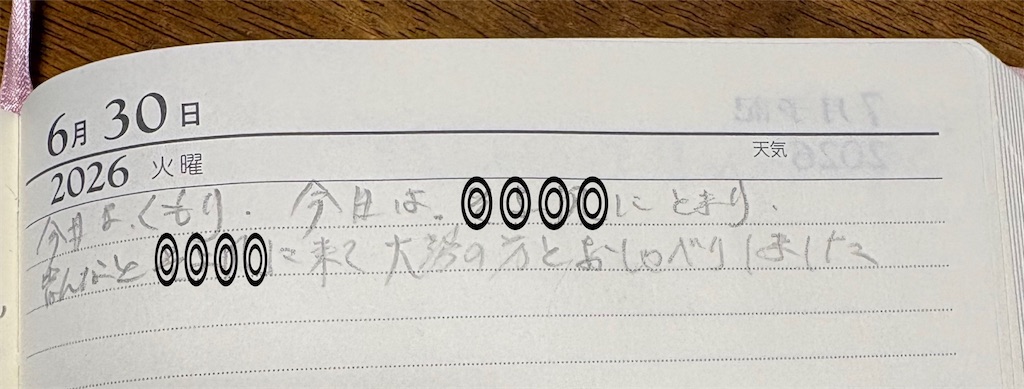 6月30日
2026 火曜
天気
今日は、くもり. 今日は. ◎◎◎◎にとまり.
みんなと◎◎◎◎に来て大勢の方とおしゃべりしました